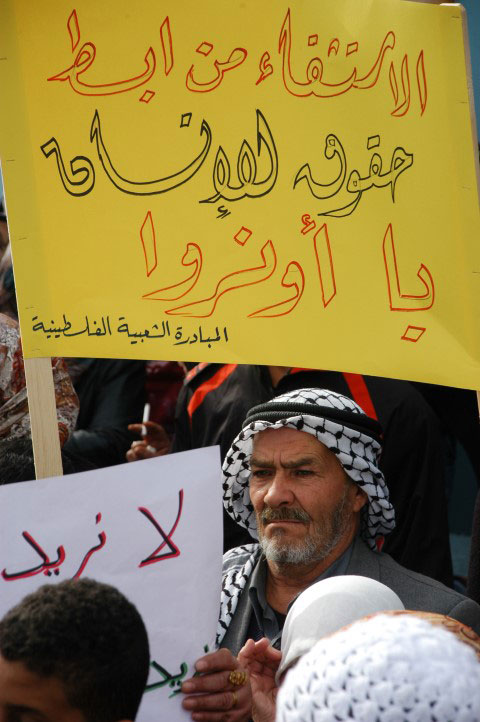 الاستشفاء من ابسط
حقوق الإنسان
يا أونروا
المبادرة الشعبية الفلسطينية
لا نريد
نريد